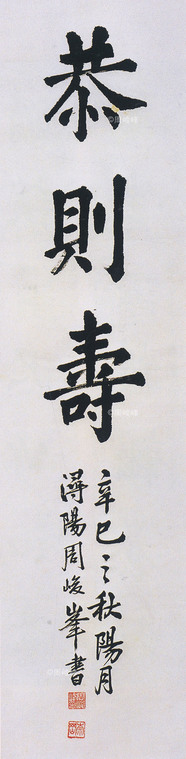 恭則壽
辛巳之秋陽月
潯陽周峻峯書